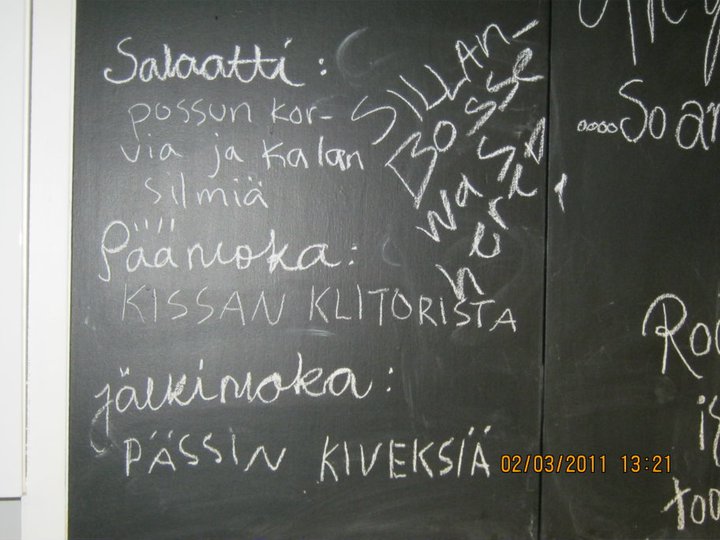 Salaatti:
possun kor-
via ja kalan
silmiä
Pääruoka:
KISSAN KLITORISTA
jälkiruoka:
PÄSSIN KIVEKSIÄ
SILLAN-
Bosse
was
....Soar
Ro
02/03/2011 13:21